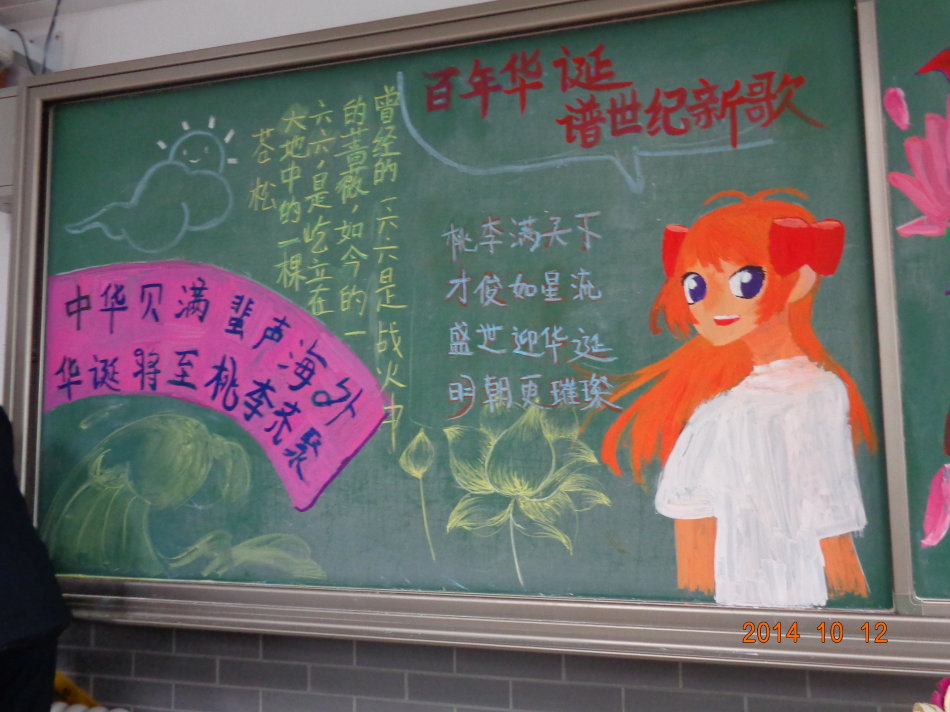 百年华诞
谱世纪新歌
曾经的一六六是战火中
的蔷薇,如今的一
六六,是屹立在
大地中的一棵
苍松
桃李满天下
才俊如星流
盛世迎华诞
明朝更璀璨
中华贝满蜚声海外
华诞将至桃李齐聚
2014 10 12